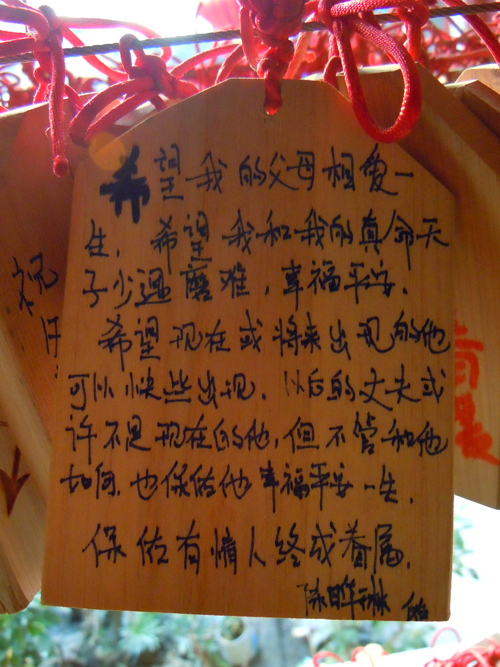 希望我的父母相爱一
生，希望我和我的真命天
子少遇磨难，幸福平安。
希望现在或将来出现的他
可以快些出现。以后的丈夫或
许不是现在的他，但不管和他
如何，也保佑他幸福平安一生。
保佑有情人终成眷属。
陈
祝